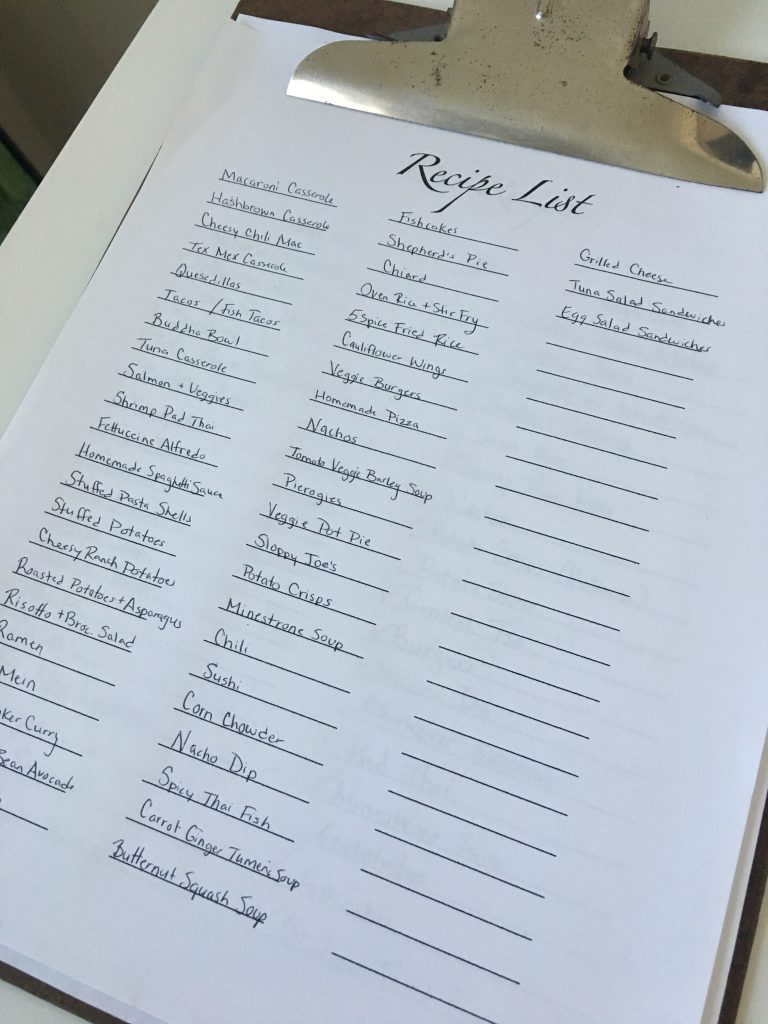 Recipe List
Macaroni Casserole
Hashbrown Casserole
Cheesy Chili Mac
Tex Mex Casserole
Quesedillas
Tacos / Fish Tacos
Buddha Bowl
Tuna Casserole
Salmon + Veggies
Shrimp Pad Thai
Fettuccine Alfredo
Homemade Spaghetti Sauce
Stuffed Pasta Shells
Stuffed Potatoes
Cheesy Ranch Potatoes
Roasted Potatoes + Asparagus
Risotto + Broc. Salad
Ramen
Mein
Curry
Bean Avocado
Fishcakes
Shepherd's Pie
Chiard
Oven Rice + Stir Fry
5 Spice Fried Rice
Cauliflower Wings
Veggie Burgers
Homemade Pizza
Nachos
Tomato Veggie Barley Soup
Pierogies
Veggie Pot Pie
Sloppy Joe's
Potato Crisps
Minestrone Soup
Chili
Sushi
Corn Chowder
Nacho Dip
Spicy Thai Fish
Carrot Ginger Tumeric Soup
Butternut Squash Soup
Grilled Cheese
Tuna Salad Sandwiches
Egg Salad Sandwiches